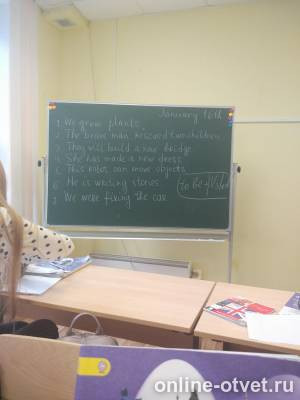 January 16th
1. We grow plants.
2. The brave man rescued two children.
3. They will build a new bridge.
4. She has made a new dress.
5. This robot can move objects.
6. He is writing stories.
to be +
7. We were fixing the car.
online-otvet.ru